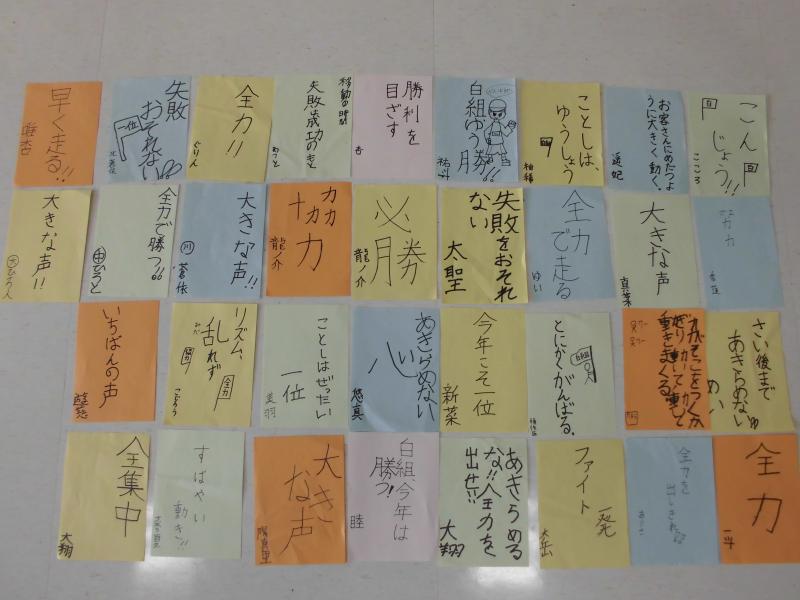 早く走る!!
失敗
おそれない
一位
全力!!
ぐりん
移動の時間
失敗成功のもと
勝利を
目ざす
杏
白組ゆう勝!!
ことしは、
ゆうしょう
お客さんにめだつよ
うに大きく動く。
こん
じょう!!
白
こころ
大きな声!!
全力で勝つ!!
大きな声!!
川
蒼依
協力
龍ノ介
必勝
龍ノ介
失敗をおそれ
ない
太聖
全力
で走る
ゆい
大きな
声
真菜
努力
いちばんの声
リズム、
乱れず
全力
ことしはぜったい
一位
美羽
あきらめない
心
悠真
今年こそ一位
新菜
とにかくがんばる。
さい後まで
あきらめない
めい
全集中
大翔
すばやい
動き!!
大き
な声
白組今年は
勝つ!
睦
あきらめる
な!!全力を
出せ!!
大翔
ファイト
一発
大岳
全力を
全力